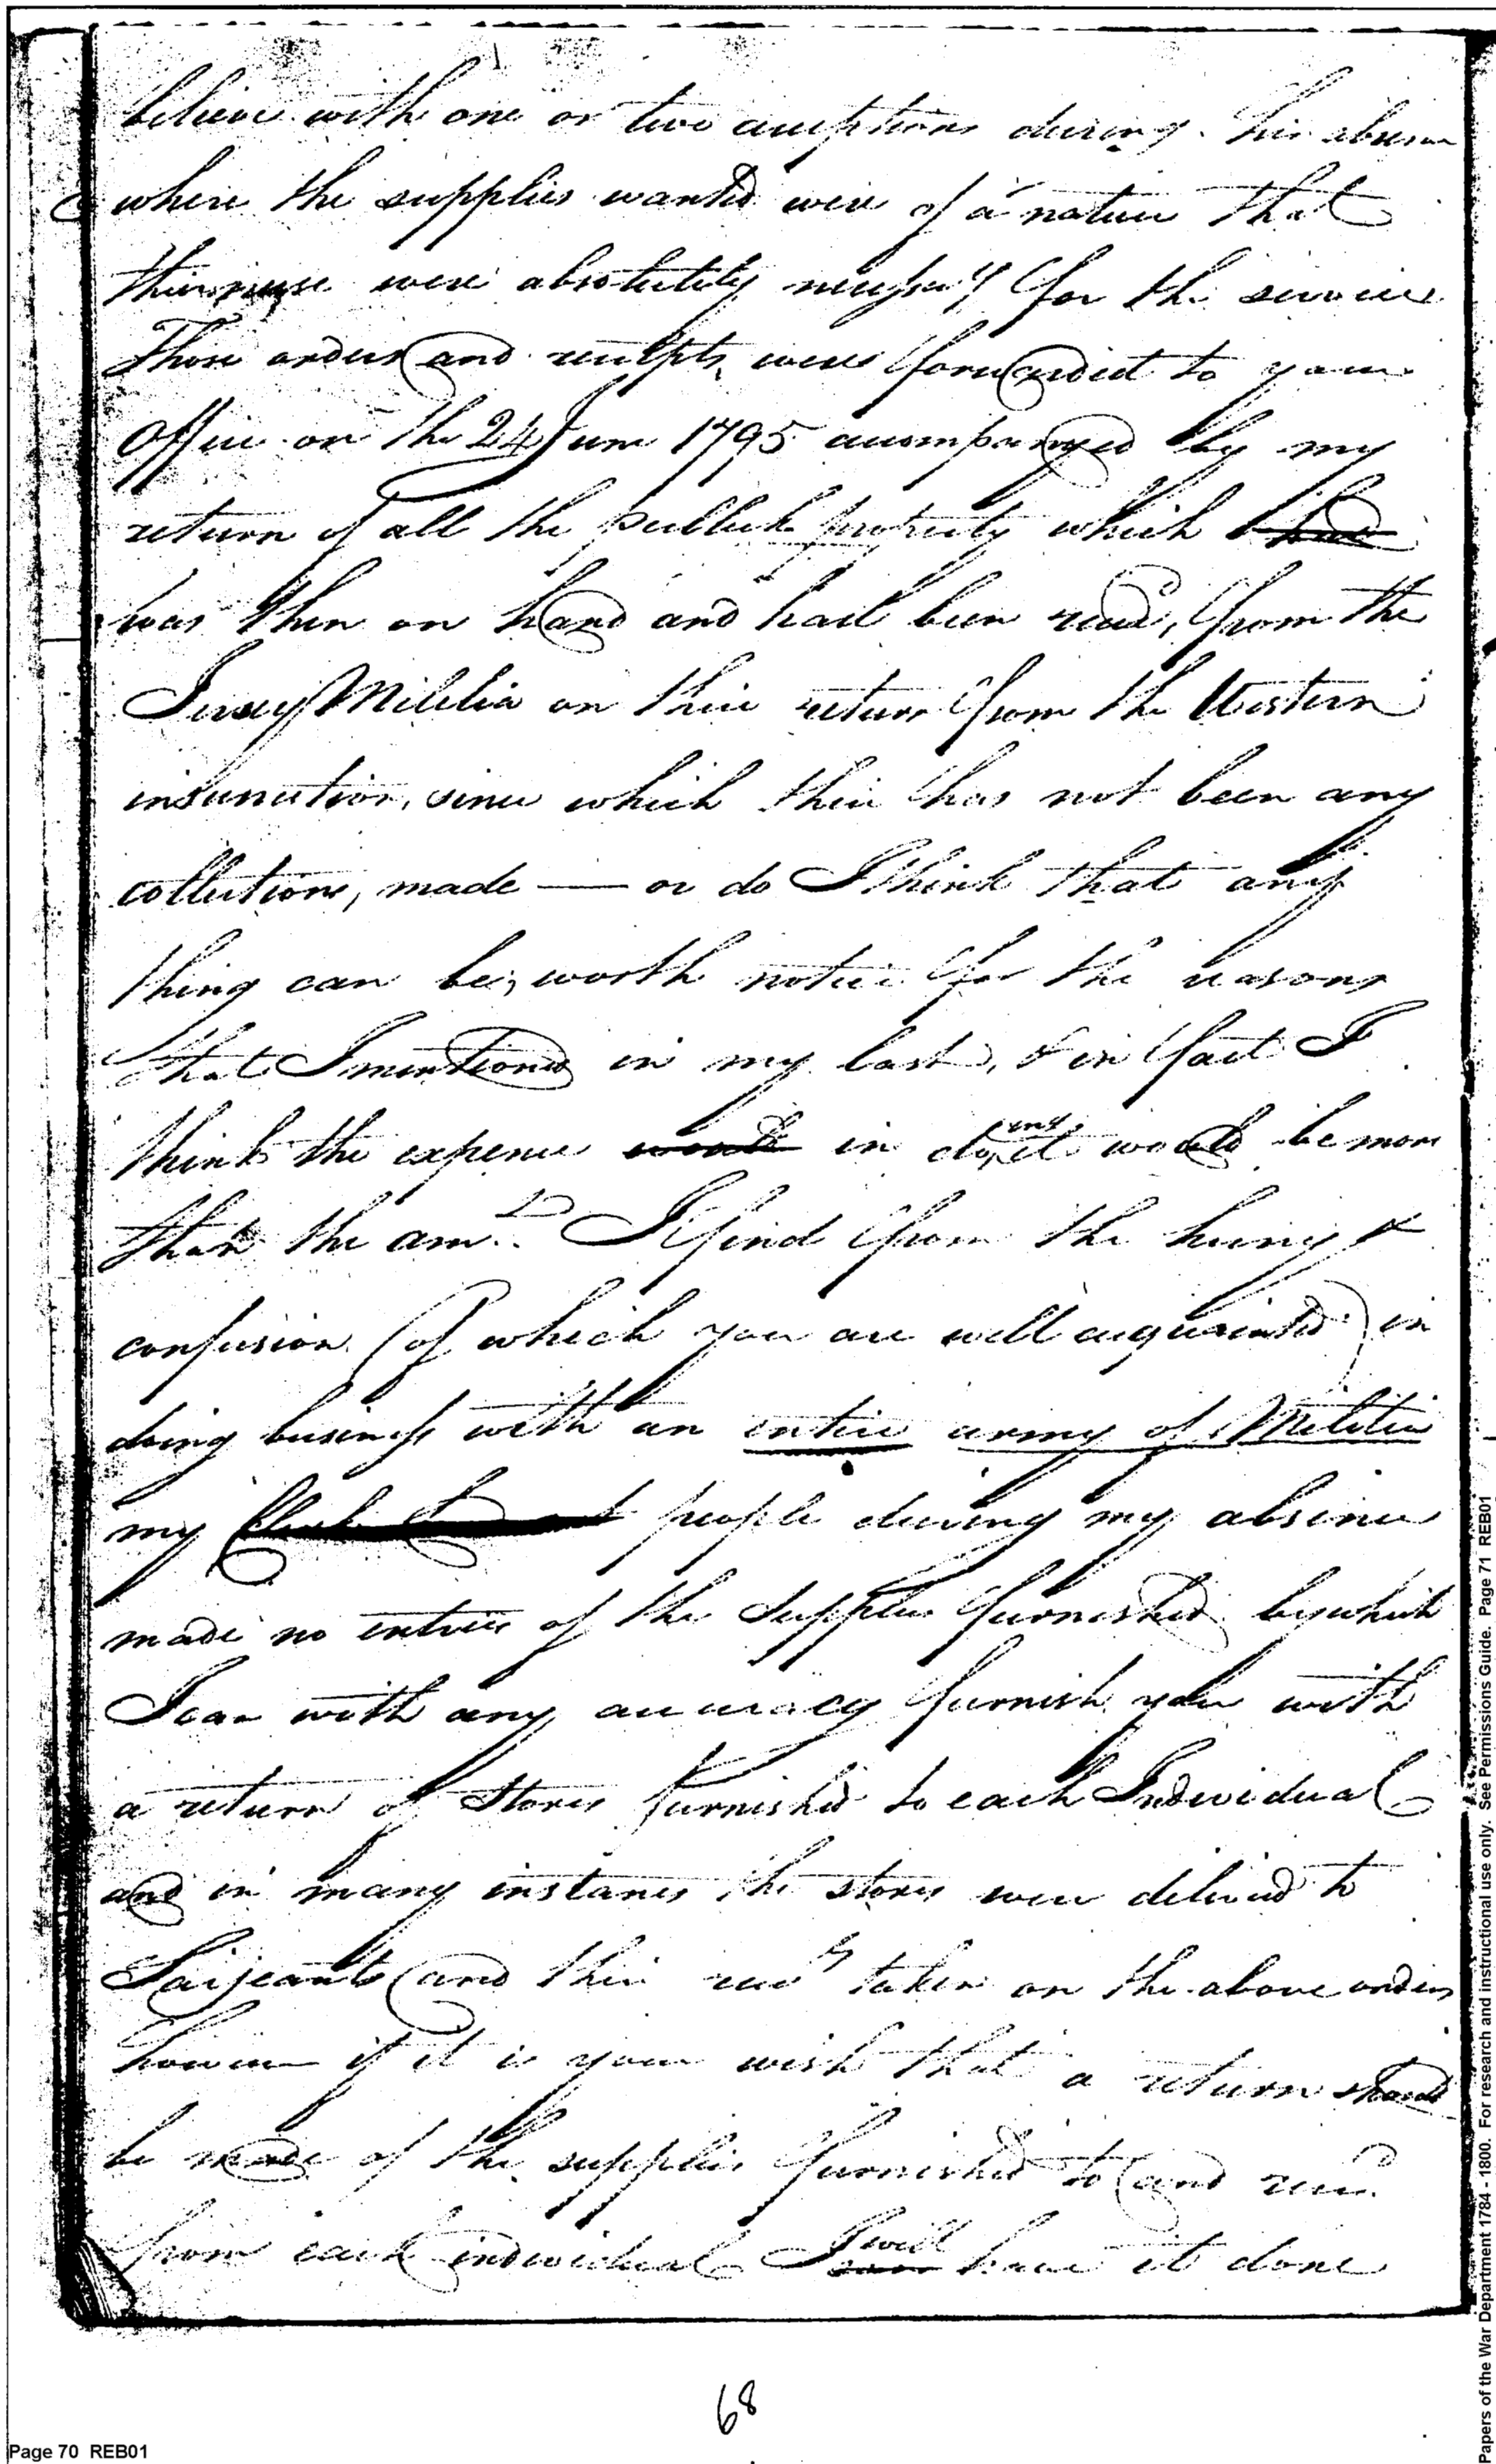 believe with one or two exceptions during his absence
where the supplies wanted were of a nature that
were absolutely necessary for the service
Those orders and receipts were forwarded to your
Office on the 24 June 1795 accompanyed by my
return of all the publick property which
was then on hand and had been recd, from the
Jersey Militia on their return from the Western
insurrection, since which their has not been any
collections, made — or do I think that any
thing can be, worth notice for the reasons
that I mentioned in my last, & in fact I
think the expence would in doing it would be more
than the amt. I find from the hurry &
confusion (of which you are well acquainted) in
doing business with an entire army of Militia
my Clerk people during my absence
made no entries of the Supplies furnished by which
I can with any accuracy furnish you with
a return of Stores furnished to each Individual
and in many instances the stores were delivered to
Sarjeants and their recd taken on the above orders
however if it is your wish that a return should
be made of the supplies furnished to and recd.
from each individual I will have it done
68
Page 70 REB01
Papers of the War Department 1784 - 1800. For research and instructional use only. See Permissions Guide. Page 71 REB01